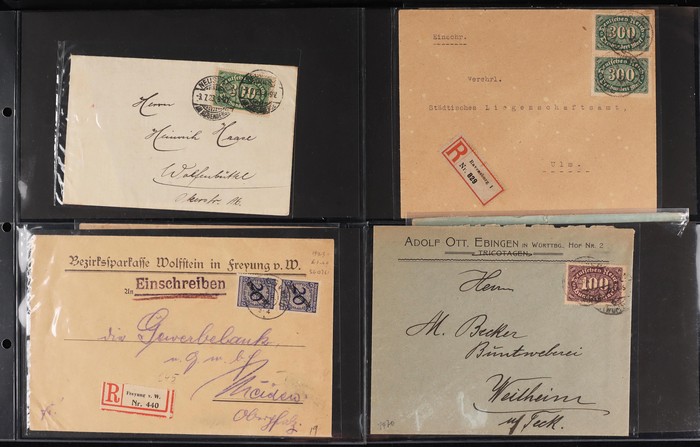 Herrn
Heinrich Haase
Wolfenbüttel
Einschr.
Verehrl.
Städtisches Liegenschaftsamt,
Ulm.
Deutsches Reich
300
Deutsches Reich
300
R Ravensburg 1
Nr. 829
Bezirkssparkasse Wolfstein in Freyung v. W.
An
Einschreiben
die Gewerbebank
Weiden
Oberpfalz
R Freyung v. W.
Nr. 440
19
ADOLF OTT, EBINGEN IN WÜRTTBG., HOF NR. 2
TRICOTAGEN
Deutsches Reich
100
Herrn
M. Becker
Buntweberei
Weilheim
u/ Teck.